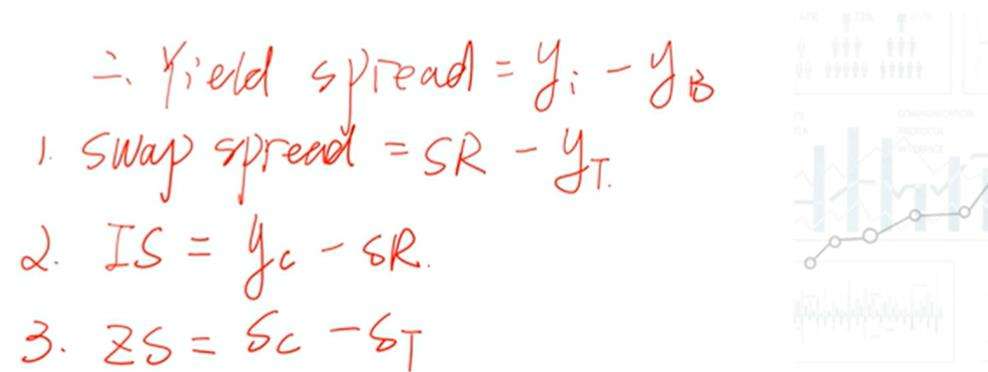 二. Yield spread = yᵢ - y_B
1. Swap spread = SR - y_T.
2. IS = y_c - SR.
3. ZS = S_c - S_T